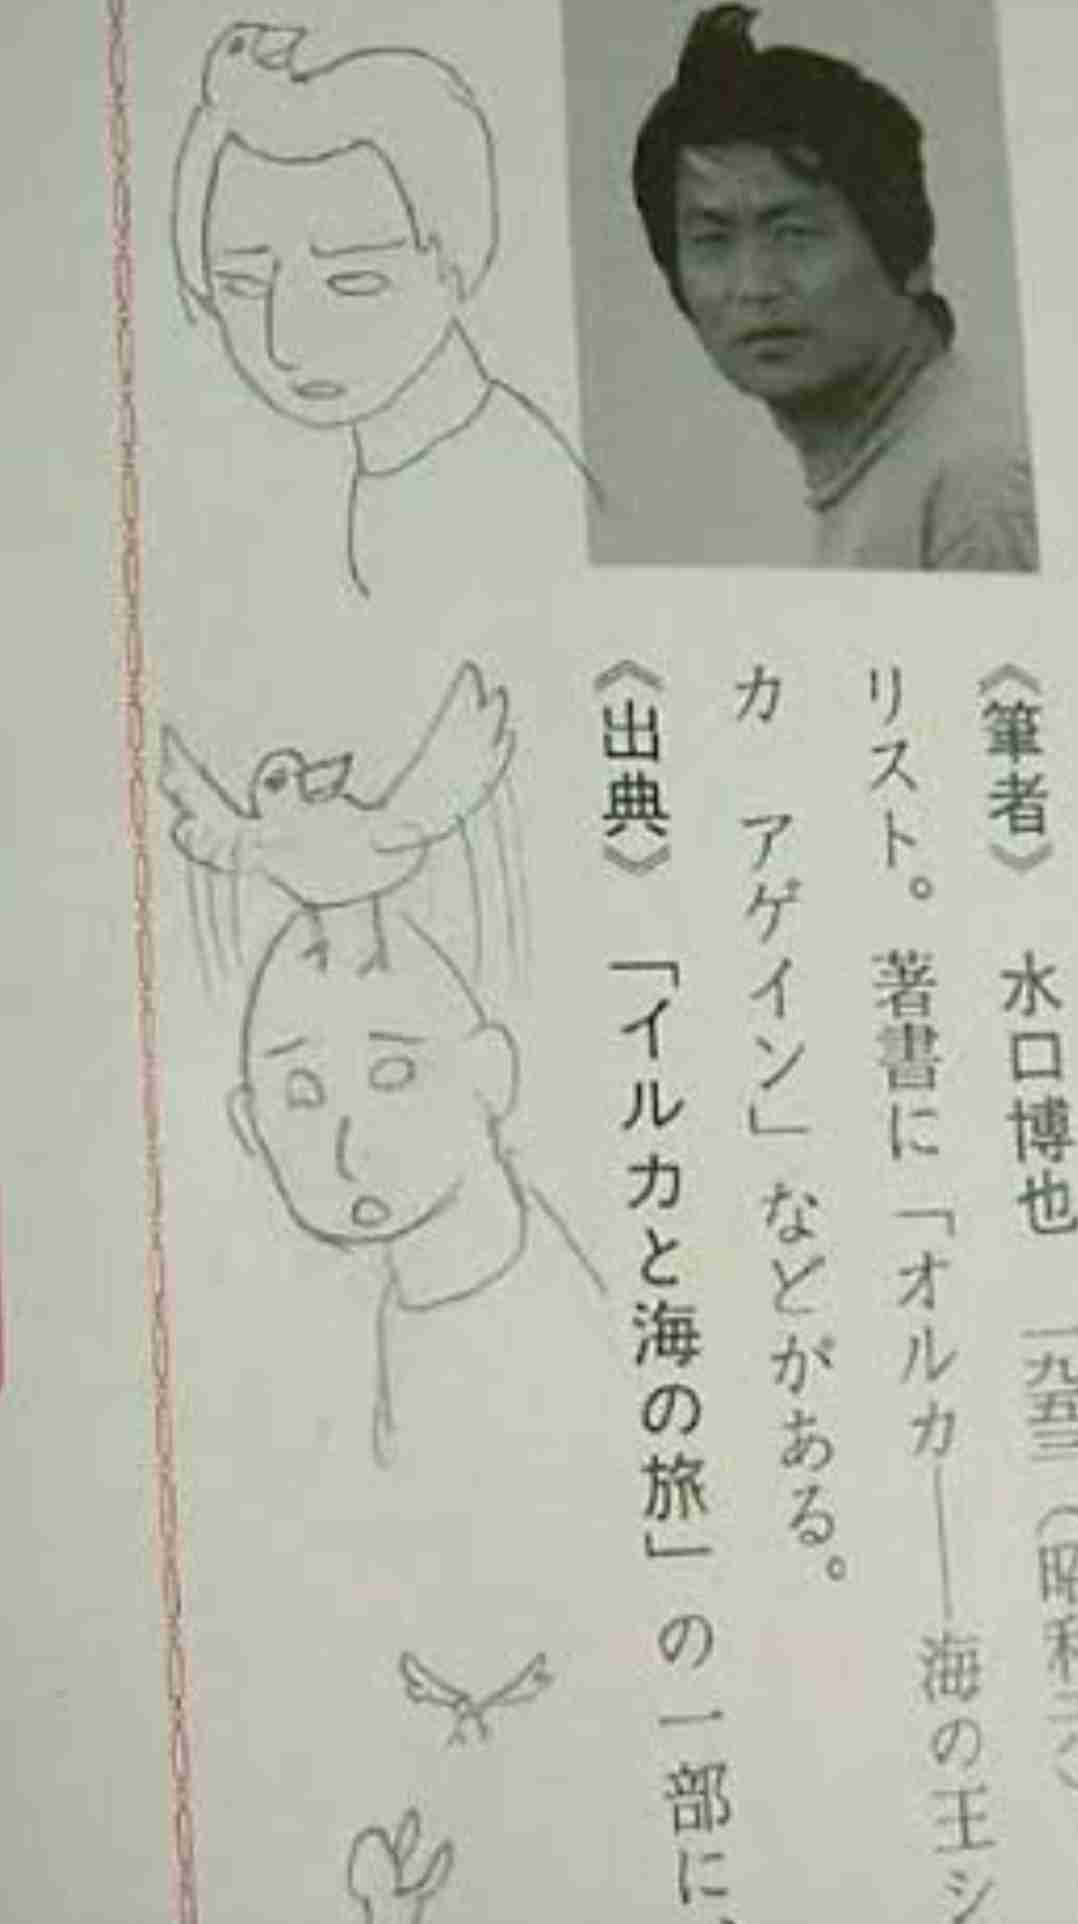 《筆者》 水口博也 一九五三(昭和二八
リスト。著書に「オルカ――海の王シ
カ アゲイン」などがある。
《出典》「イルカと海の旅」の一部に、